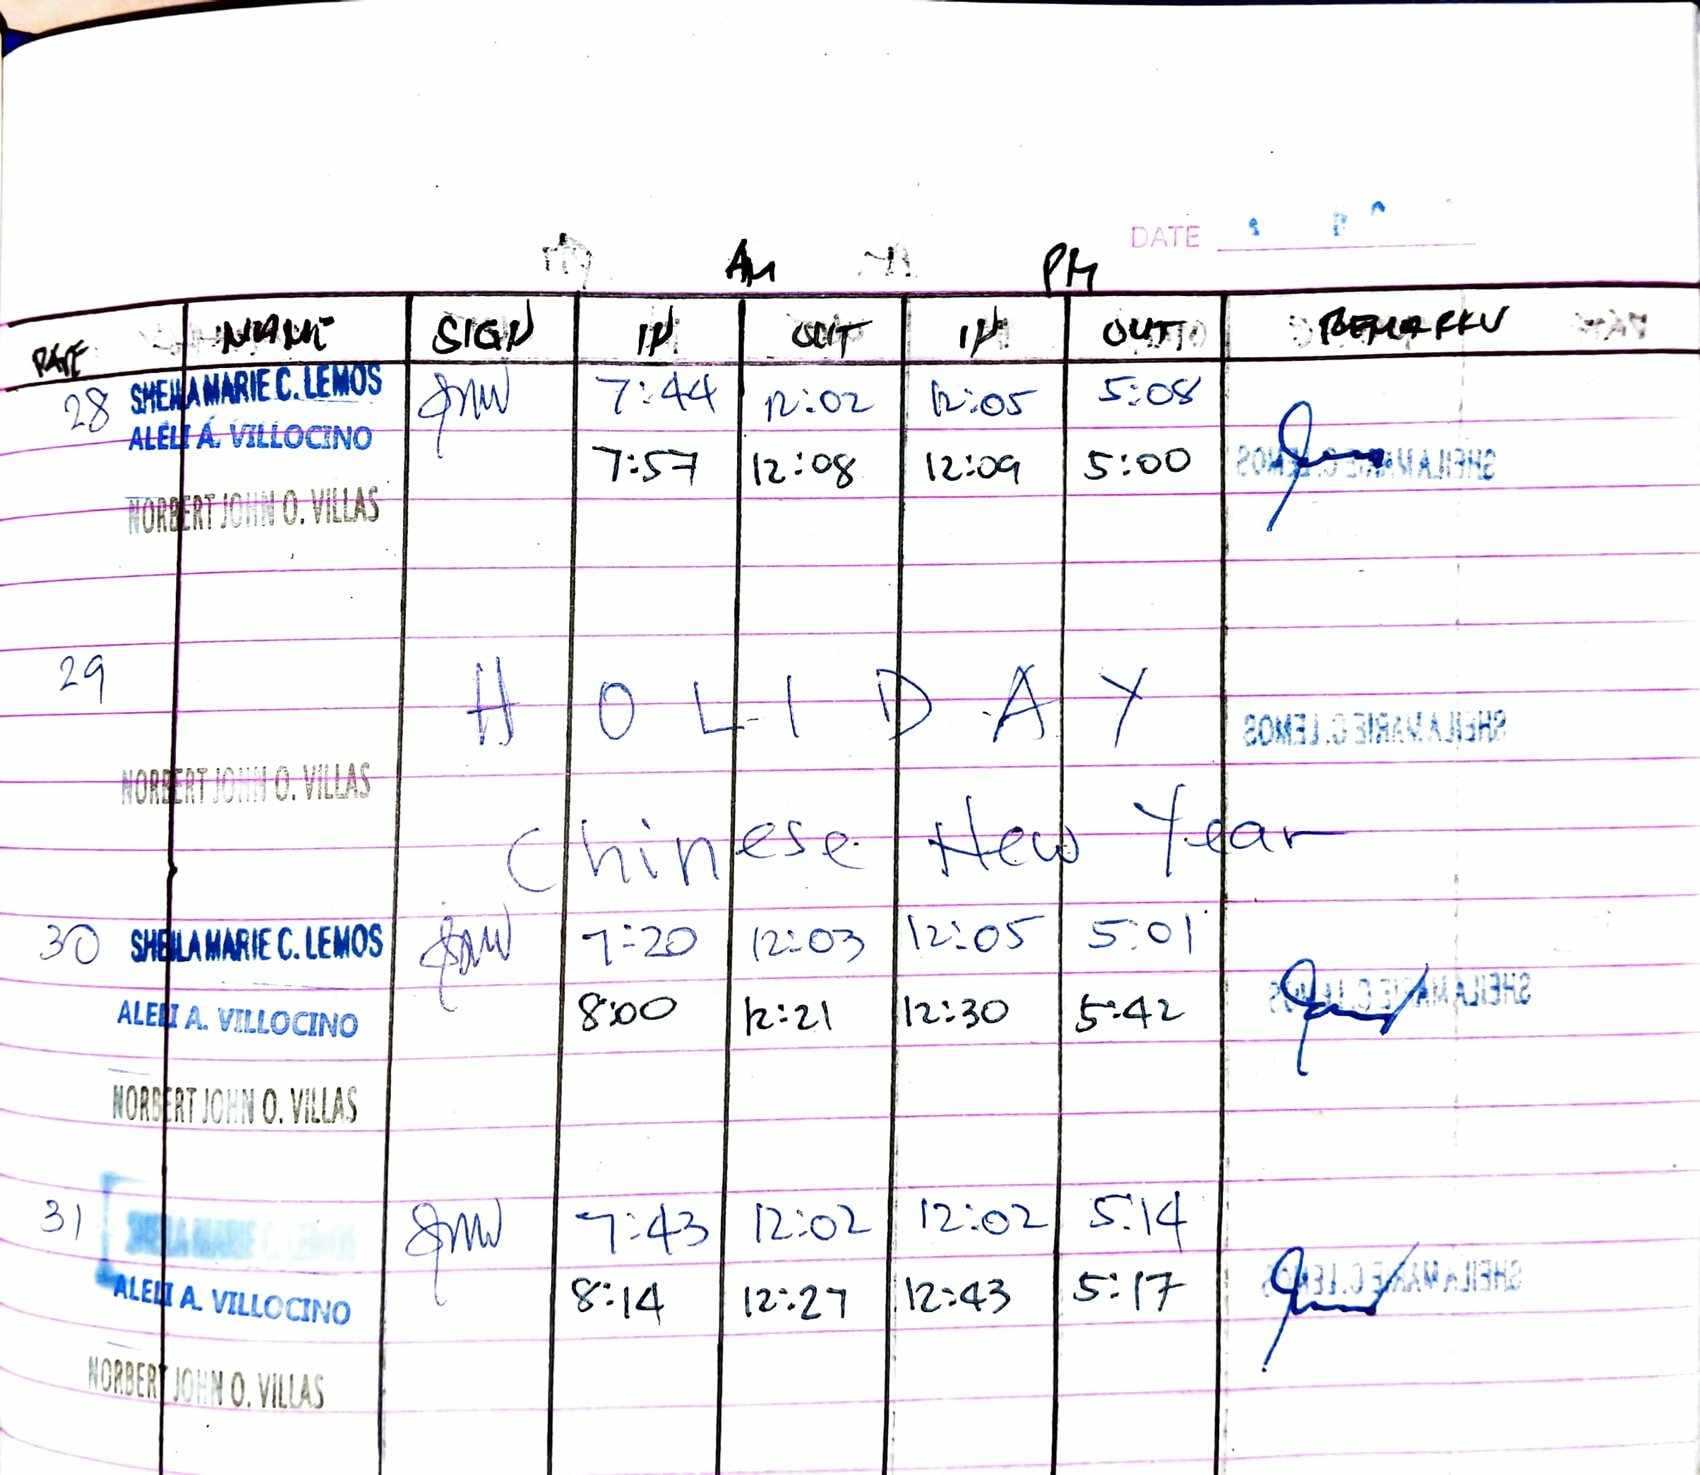 DATE
AM PM
DATE NAME SIGN IN OUT IN OUT REMARKS
28 SHEILA MARIE C. LEMOS 7:44 12:02 12:05 5:08
ALELI A. VILLOCINO 7:57 12:08 12:09 5:00
NORBERT JOHN O. VILLAS
29 HOLIDAY
NORBERT JOHN O. VILLAS
Chinese New Year
30 SHEILA MARIE C. LEMOS 7:20 12:03 12:05 5:01
ALELI A. VILLOCINO 8:00 12:21 12:30 5:42
NORBERT JOHN O. VILLAS
31 7:43 12:02 12:02 5:14
ALELI A. VILLOCINO 8:14 12:27 12:43 5:17
NORBERT JOHN O. VILLAS